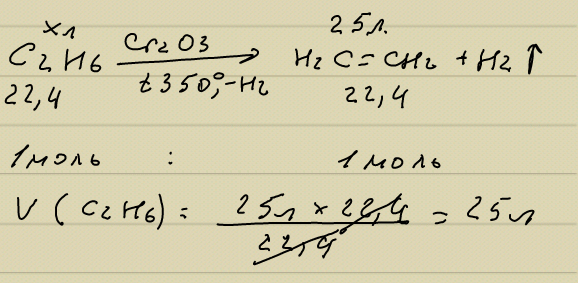 x л 25 л.
C2H6 Cr2O3 t 350°, -H2 → H2C=CH2 + H2↑
22,4 22,4
1 моль : 1 моль
V (C2H6) = 25л × 22,4 / 22,4 = 25л